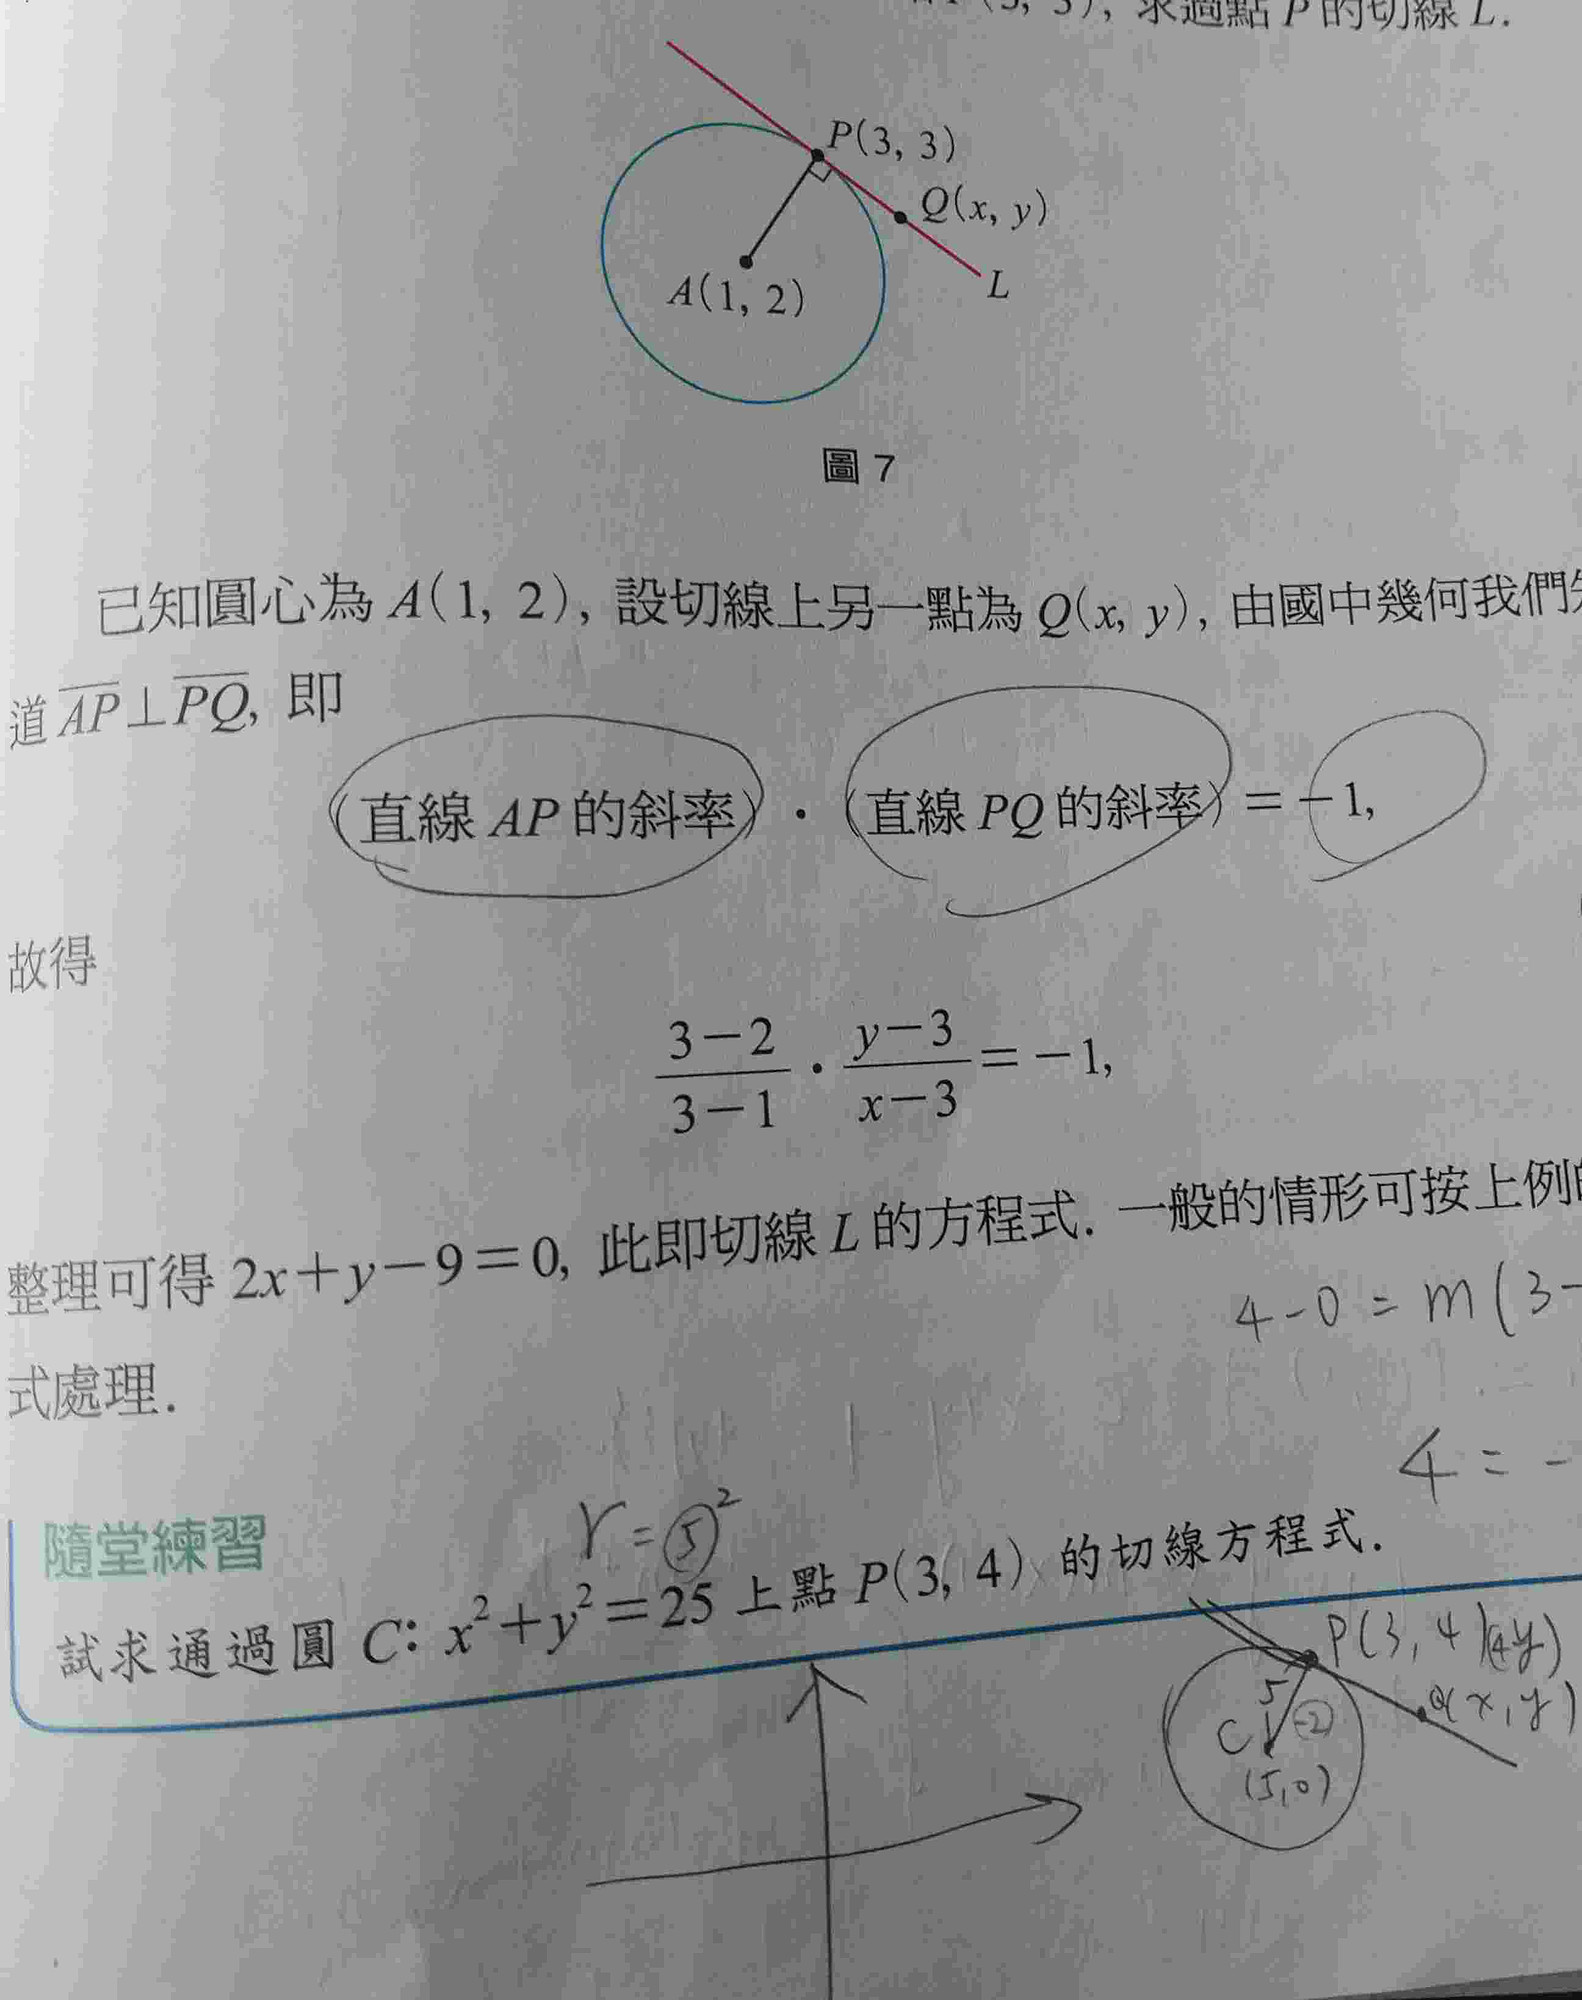 求過點 P 的切線 L.
P(3, 3)
Q(x, y)
L
A(1, 2)
圖 7
已知圓心為 A(1, 2), 設切線上另一點為 Q(x, y), 由國中幾何我們
道 \overline{AP}⊥\overline{PQ}, 即
(直線 AP 的斜率)·(直線 PQ 的斜率)=-1,
故得
\frac{3-2}{3-1}·\frac{y-3}{x-3}=-1,
整理可得 2x+y-9=0, 此即切線 L 的方程式. 一般的情形可按上例
4-0 = m(3-
式處理.
4 = -
r = 5²
隨堂練習
試求通過圓 C: x²+y²=25 上點 P(3, 4) 的切線方程式.
P(3, 4)
Q(x, y)
5
C
-2
(5,0)